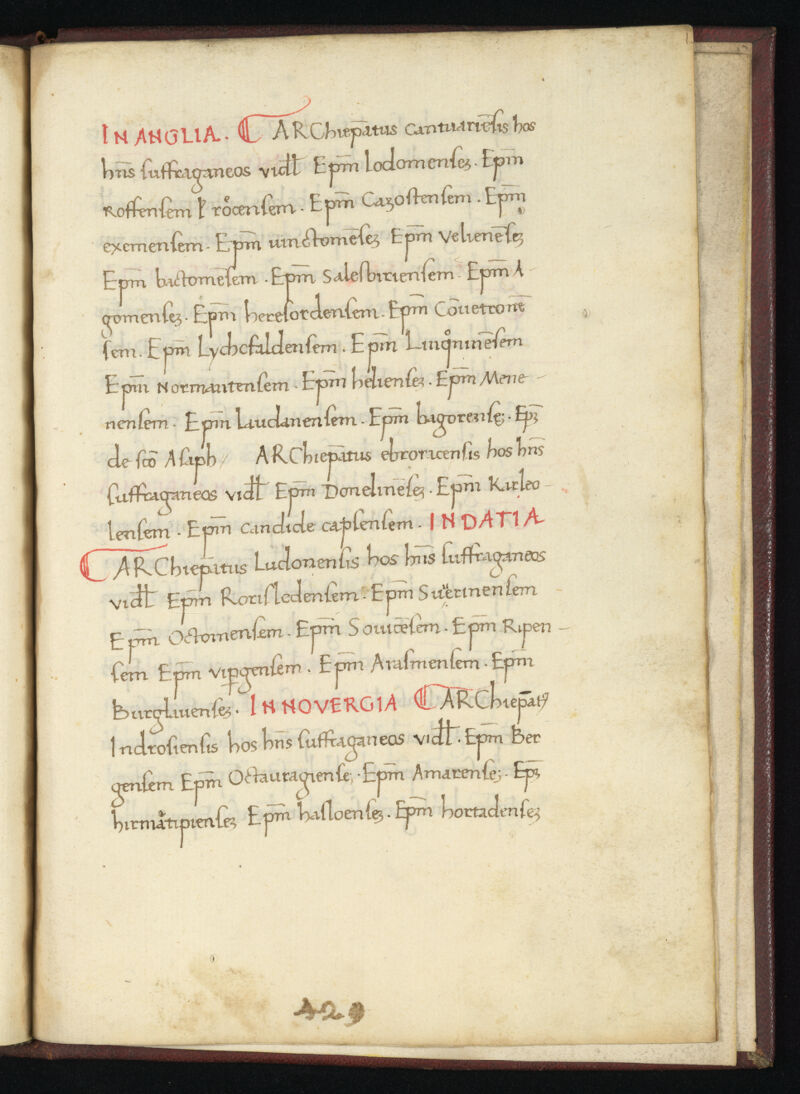 IN ANGLIA. ¶ ARChiep̄atus cantuariēſis hos
hn̄s ſuffraganeos vidꝫ Ep̄m lodomenſeꝫ. Ep̄m
Roffenſem ł roͦcenſem. Ep̄m Cazoſtenſem. Ep̄m
exemenſem. Ep̄m uinctomēſeꝫ Ep̄m Velienēſeꝫ
Ep̄m bactomēſem. Ep̄m Saleſbirienſem. Ep̄m A
gomenſeꝫ. Ep̄m herefordenſem. Ep̄m Cōuetronē
ſem. Ep̄m Lychcfaldenſem. Ep̄m Linqͦninēſem
Ep̄m Normantenſem. Ep̄m helienſeꝫ. Ep̄m Mene
nenſem. Ep̄m Laudanenſem. Ep̄m bagorenſeꝫ. Ep̄ꝫ
de ſc̄o Aſaph / ARChiep̄atus ebroracenſis hos hn̄s
ſuffraganeos vidꝫ Ep̄m Donelmēſeꝫ. Ep̄m Karleo
lenſem. Ep̄m candide capſenſem. IN DATIA
¶ ARChiep̄atus Ludonenſis hos hn̄s ſuffraganeos
vidꝫ Ep̄m Roriſledenſem. Ep̄m Suerinenſem
Ep̄m Octomenſem. Ep̄m Souicēſem. Ep̄m Ripen
ſem Ep̄m viꝑgenſem. Ep̄m Araſmenſem. Ep̄m
Burgliuenſeꝫ. IN NOVERGIA ¶ ARChiep̄atꝰ
Indroſienſis hos hn̄s ſuffraganeos vidꝫ. Ep̄m Ber
genſem Ep̄m Octauragienſeꝫ. Ep̄m Amarenſeꝫ. Ep̄ꝫ
hirmaͣtipienſeꝫ Ep̄m haſloenſeꝫ. Ep̄m hortadenſeꝫ
429